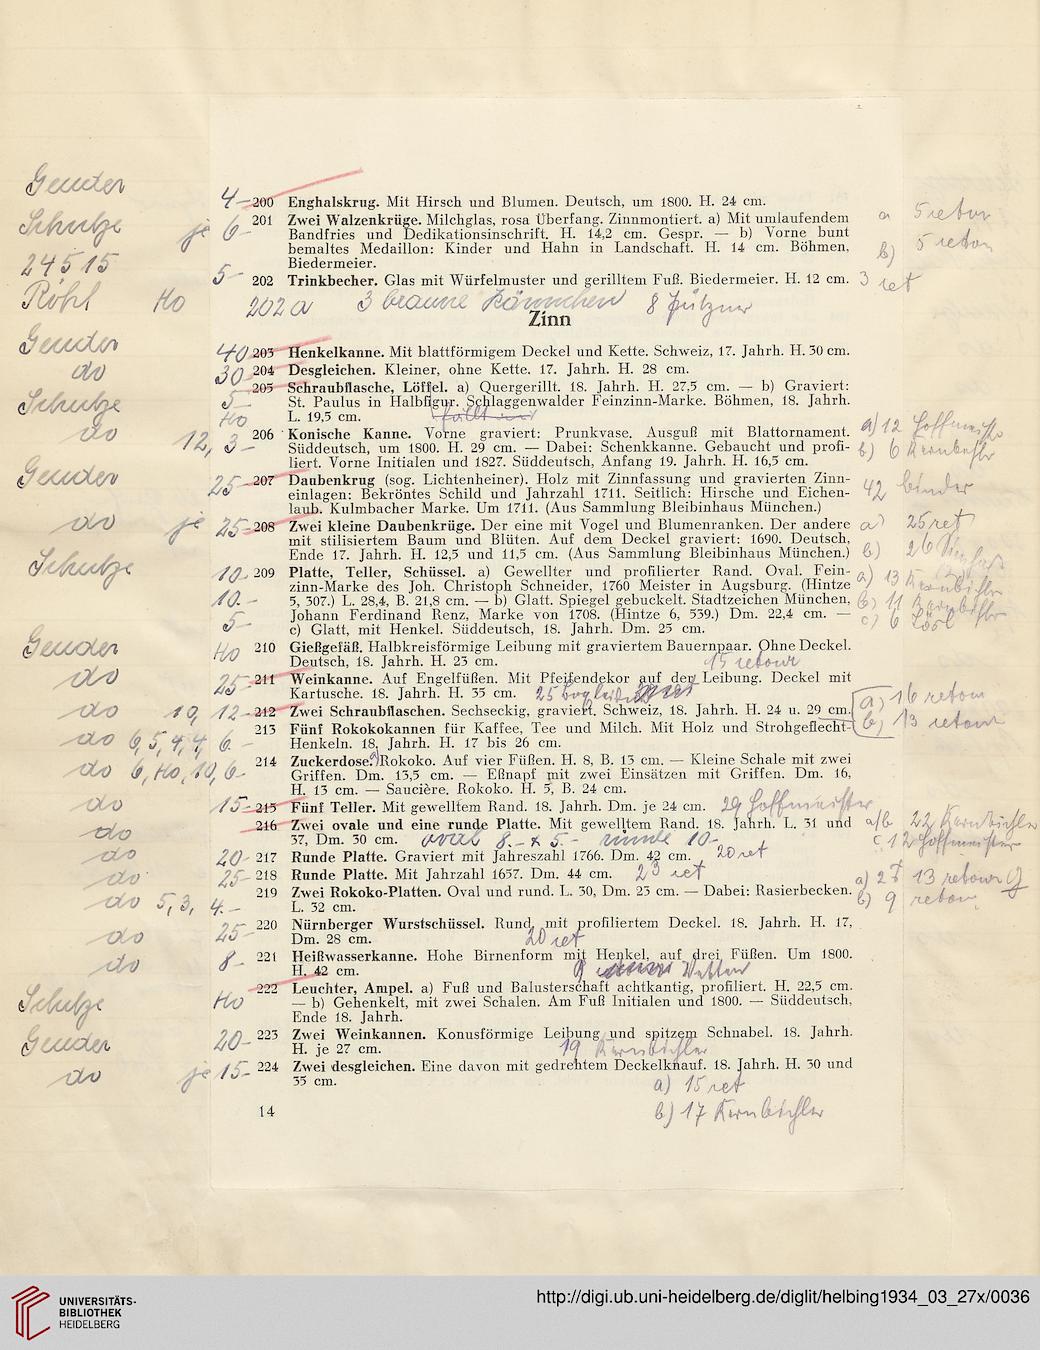 Gender
4.- 200 Enghalskrug. Mit Hirsch und Blumen. Deutsch, um 1800. H. 24 cm.
Schutze je 6.- 201 Zwei Walzenkrüge. Milchglas, rosa Überfang. Zinnmontiert. a) Mit umlaufendem
a 5 retour
Bandfries und Dedikationsinschrift. H. 14,2 cm. Gespr. — b) Vorne bunt
b) 5 retour
bemaltes Medaillon: Kinder und Hahn in Landschaft. H. 14 cm. Böhmen,
Biedermeier.
24515
5- 202 Trinkbecher. Glas mit Würfelmuster und gerilltem Fuß. Biedermeier. H. 12 cm. 3 ret
Röhl Ho 202a 3 braune Kännchen 8 Pützner
Zinn
Gender 40 203 Henkelkanne. Mit blattförmigem Deckel und Kette. Schweiz, 17. Jahrh. H. 30 cm.
do 30 204 Desgleichen. Kleiner, ohne Kette. 17. Jahrh. H. 28 cm.
205 Schraubflasche, Löffel. a) Quergerillt. 18. Jahrh. H. 27,5 cm. — b) Graviert:
Schutze 5- St. Paulus in Halbfigur. Schlaggenwalder Feinzinn-Marke. Böhmen, 18. Jahrh.
Ho L. 19,5 cm.
do 12, 3- 206 Konische Kanne. Vorne graviert: Prunkvase. Ausguß mit Blattornament. a) 12 Hoffmeister
Süddeutsch, um 1800. H. 29 cm. — Dabei: Schenkkanne. Gebaucht und profi- b) 6 Kernbichler
liert. Vorne Initialen und 1827. Süddeutsch, Anfang 19. Jahrh. H. 16,5 cm.
Gender 25- 207 Daubenkrug (sog. Lichtenheiner). Holz mit Zinnfassung und gravierten Zinn-
einlagen: Bekröntes Schild und Jahrzahl 1711. Seitlich: Hirsche und Eichen- 42 binder
laub. Kulmbacher Marke. Um 1711. (Aus Sammlung Bleibinhaus München.)
do je 25- 208 Zwei kleine Daubenkrüge. Der eine mit Vogel und Blumenranken. Der andere a) 25 ret
mit stilisiertem Baum und Blüten. Auf dem Deckel graviert: 1690. Deutsch,
Ende 17. Jahrh. H. 12,5 und 11,5 cm. (Aus Sammlung Bleibinhaus München.) b) 26
Schutze 10.- 209 Platte, Teller, Schüssel. a) Gewellter und profilierter Rand. Oval. Fein- a) 13 Kernbichler
zinn-Marke des Joh. Christoph Schneider, 1760 Meister in Augsburg. (Hintze
10.- 5, 307.) L. 28,4, B. 21,8 cm. — b) Glatt. Spiegel gebuckelt. Stadtzeichen München, b) 11 Kernbichler
5- Johann Ferdinand Renz, Marke von 1708. (Hintze 6, 539.) Dm. 22,4 cm. — c) 6
c) Glatt, mit Henkel. Süddeutsch, 18. Jahrh. Dm. 23 cm.
Gender Ho 210 Gießgefäß. Halbkreisförmige Leibung mit graviertem Bauernpaar. Ohne Deckel.
Deutsch, 18. Jahrh. H. 23 cm. 15 retour
do 25- 211 Weinkanne. Auf Engelfüßen. Mit Pfeifendekor auf der Leibung. Deckel mit
Kartusche. 18. Jahrh. H. 33 cm. 25
a) 16 retour
do 10, 12- 212 Zwei Schraubflaschen. Sechseckig, graviert. Schweiz, 18. Jahrh. H. 24 u. 29 cm. b) 13 retour
do 6, 5, 4, 4, 6.- 213 Fünf Rokokokannen für Kaffee, Tee und Milch. Mit Holz und Strohgeflecht-
Henkeln. 18. Jahrh. H. 17 bis 26 cm.
do 6, Ho, 10, 6- 214 Zuckerdose. a) Rokoko. Auf vier Füßen. H. 8, B. 13 cm. — Kleine Schale mit zwei
Griffen. Dm. 13,5 cm. — Eßnapf mit zwei Einsätzen mit Griffen. Dm. 16,
H. 13 cm. — Saucière. Rokoko. H. 5, B. 24 cm.
do 15- 215 Fünf Teller. Mit gewelltem Rand. 18. Jahrh. Dm. je 24 cm. 29 Hoffmeister
do 216 Zwei ovale und eine runde Platte. Mit gewelltem Rand. 18. Jahrh. L. 31 und a/b 22 Kernbichler
37, Dm. 30 cm. oval 8.- x 5.- runde 10- c 12 Hoffmeister
do 20- 217 Runde Platte. Graviert mit Jahreszahl 1766. Dm. 42 cm. 20 ret
do 25- 218 Runde Platte. Mit Jahrzahl 1637. Dm. 44 cm. 23 ret
do 5, 3, 4.- 219 Zwei Rokoko-Platten. Oval und rund. L. 30, Dm. 23 cm. — Dabei: Rasierbecken. 13 retour
L. 32 cm. b) 9 retour
do 25- 220 Nürnberger Wurstschüssel. Rund, mit profiliertem Deckel. 18. Jahrh. H. 17,
Dm. 28 cm. 20 ret
do 8- 221 Heißwasserkanne. Hohe Birnenform mit Henkel, auf drei Füßen. Um 1800.
H. 42 cm.
Schutze Ho 222 Leuchter, Ampel. a) Fuß und Balusterschaft achtkantig, profiliert. H. 22,5 cm.
— b) Gehenkelt, mit zwei Schalen. Am Fuß Initialen und 1800. — Süddeutsch,
Ende 18. Jahrh.
Gender 20- 223 Zwei Weinkannen. Konusförmige Leibung und spitzem Schnabel. 18. Jahrh.
H. je 27 cm. 19 Kernbichler
do je 15- 224 Zwei desgleichen. Eine davon mit gedrehtem Deckelknauf. 18. Jahrh. H. 30 und
33 cm. a) 15 ret
14 b) 17 Kernbichler
UNIVERSITÄTS-
BIBLIOTHEK
HEIDELBERG
http://digi.ub.uni-heidelberg.de/diglit/helbing1934_03_27x/0036